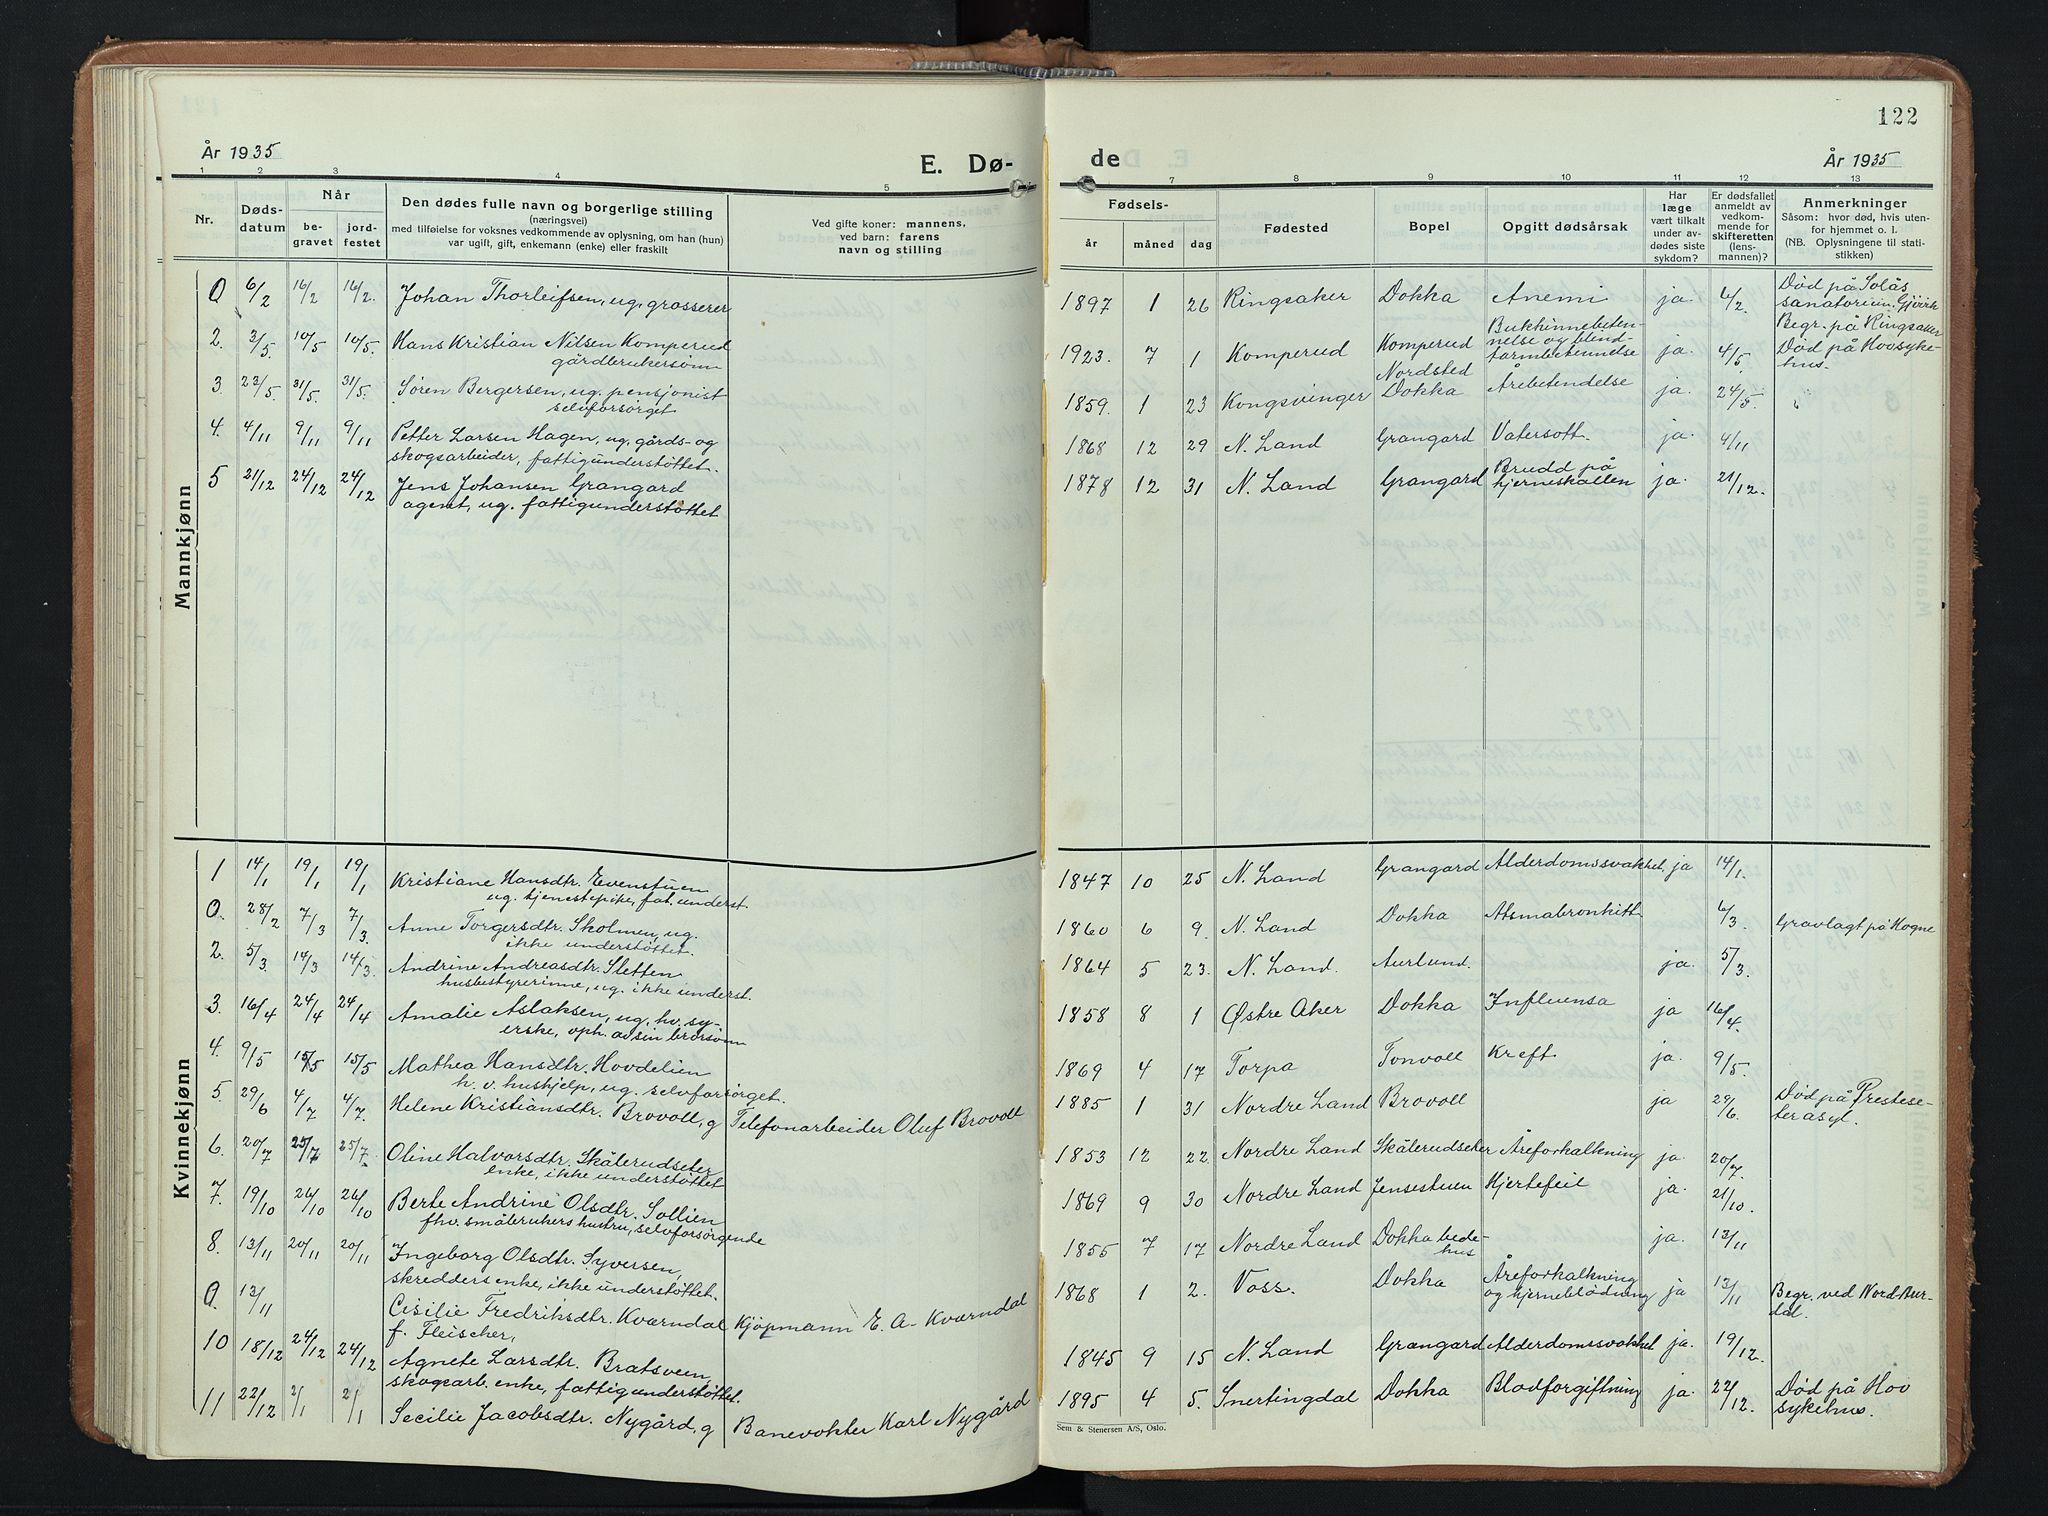 122
År 1935
E. Dø-
de
År 1935
1 2 3 4 5
7 8 9 10 11 12 13
Nr.
Døds-
datum
Når
be-
gravet
jord-
festet
Den dødes fulle navn og borgerlige stilling
(næringsvei)
med tilføielse for voksnes vedkommende av oplysning, om han (hun)
var ugift, gift, enkemann (enke) eller fraskilt
Ved gifte koner: mannens,
ved barn: farens
navn og stilling
Fødsels-
år
måned
dag
Fødested
Bopel
Opgitt dødsårsak
Har
læge
vært tilkalt
under av-
dødes siste
sykdom?
Er dødsfallet
anmeldt av
vedkom-
mende for
skifteretten
(lens-
mannen)?
Anmerkninger
Såsom: hvor død, hvis uten-
for hjemmet o. l.
(NB. Oplysningene til stati-
stikken)
Mannkjønn
0 6/2 16/2 16/2. Johan Thorleifsen, ug. grosserer
1897 1 26 Ringsaker Dokka Anemi ja. 6/2 Død på Solås
sanatorium, Gjøvik
Begr. på Ringsaker
2. 3/5 10/5 10/5. Hans Kristian Nilsen Komperud
gårdbrukersønn
1923. 7 1 Komperud Komperud Bukhinnebeten-
nelse og blind-
tarmbetennelse ja. 4/5 Død på Hovsyke-
hus.
3 23/5 31/5 31/5. Søren Bergersen, ug. pensjonist
selvforsørget
1859. 1 23 Kongsvinger Nordsted
Dokka Årebetendelse ja. 24/5.
4. 4/11 9/11 9/11 Petter Larsen Hagen, ug. gårds- og
skogsarbeider, fattigunderstøttet.
1868 12 29 N. Land Grangard Vatersott. ja. 4/11
5 21/12 24/12 24/12 Jens Johansen Grangard
agent, ug. fattigunderstøttet
1878 12 31 N. Land Grangard Brudd på
hjerneskallen ja. 21/12.
Kvinnekjønn
1 14/1 19/1 19/1 Kristiane Hansdtr. Evenstuen
ug. tjenestepike, fat. underst.
1847 10 25 N. Land Grangard Alderdomssvakhet, ja 14/1.
0. 28/2 7/3 7/3. Anne Torgersdtr. Skolmen, ug.
ikke understøttet.
1860 6 9. N. Land Dokka Atsmabronkitt 6/3 Gravlagt på Hogne
2. 5/3. 14/3 14/3 Andrine Andreasdtr. Sletten
husbestyrerinne, ug. ikke underst.
1864 5 23. N. Land. Aurlund. ja. 5/3.
3. 16/4 24/4 24/4 Amalie Aslaksen, ug, hv. sy-
erske, oph. av sin brorsønn
1858 8 1 Østre Aker Dokka Influensa ja 16/4.
4. 9/5 15/5 15/5 Mathea Hansdtr. Hovdelien
h. v. hushjelp, ug. selvforsørget.
1869 4 17 Torpa Tonvoll Kreft ja. 9/5.
5. 29/6 4/7 4/7. Helene Kristiansdtr. Brovoll, g Telefonarbeider Oluf Brovoll
1885 1 31 Nordre Land Brovoll ja 29/6. Død på Prestese-
terasyl.
6. 20/7 25/7 25/7. Oline Halvorsdtr. Skålerudseter
enke, ikke understøttet
1853 12 22. Nordre Land Skålerudseter Åreforkalkning ja. 20/7.
7. 19/10 26/10 26/10 Berte Andrine Olsdtr. Sollien
fhv. småbrukers hustru, selvforsørgende
1869 9 30 Nordre Land Jensestuen Hjertefeil ja. 21/10.
8. 13/11 20/11 20/11 Ingeborg Olsdtr. Syversen,
skredders enke, ikke understøttet.
1855 7 17 Nordre Land Dokka bede-
hus ja. 13/11
0. 13/11 Cisilie Fredriksdtr. Kværndal Kjøpmann E. A. Kværndal
f. Fleischer,
1868 1 2. Voss. Dokka Åreforkalkning
og hjerneblødning ja 13/11 Begr. ved Nord-Aur-
dal.
10 18/12 24/12 24/12 Agnete Larsdtr. Bratsveen,
skogsarb. enke, fattigunderstøttet.
1845 9 15 N. Land Grangard Alderdomssvakhet ja. 19/12.
11 22/12 2/1 2/1 Secilie Jacobsdtr. Nygård, g Banevokter Karl Nygård
1895 4 5. Snertingdal Dokka Blodforgiftning ja. 22/12. Død på Hov
sykehus.
Sem & Stenersen A/S, Oslo.